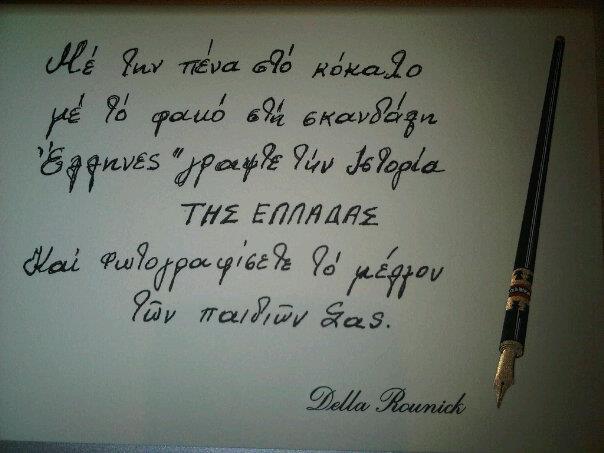 Μέ την πένα στό κόκαλο
μέ τό φακό στή σκανδάλη
Έλληνες "γραψτε τήν Ιστορία
ΤΗΣ ΕΛΛΑΔΑΣ
Και Φωτογραφίσετε τό μέλλον
τῶν παιδιῶν Σας.
Della Rounick